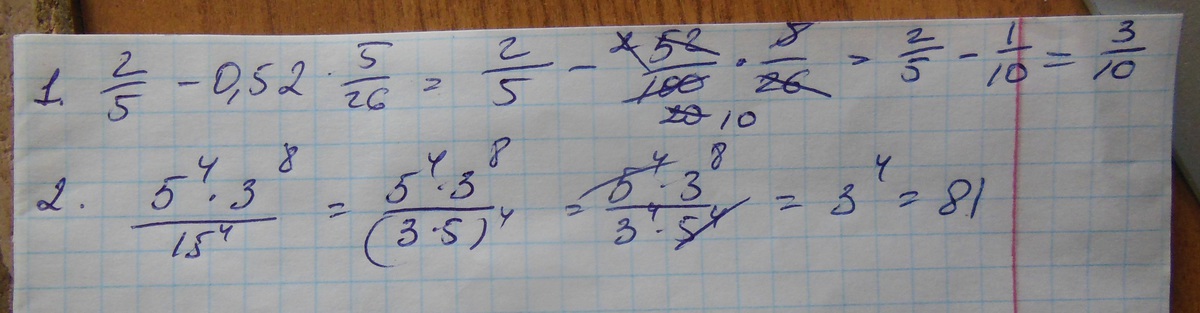 1. 2/5 - 0,52 · 5/26 = 2/5 - 52/100 · 5/26 = 2/5 - 1/10 = 3/10
2. 5^4 · 3^8 / 15^4 = 5^4 · 3^8 / (3·5)^4 = 5^4 · 3^8 / 3^4 · 5^4 = 3^4 = 81